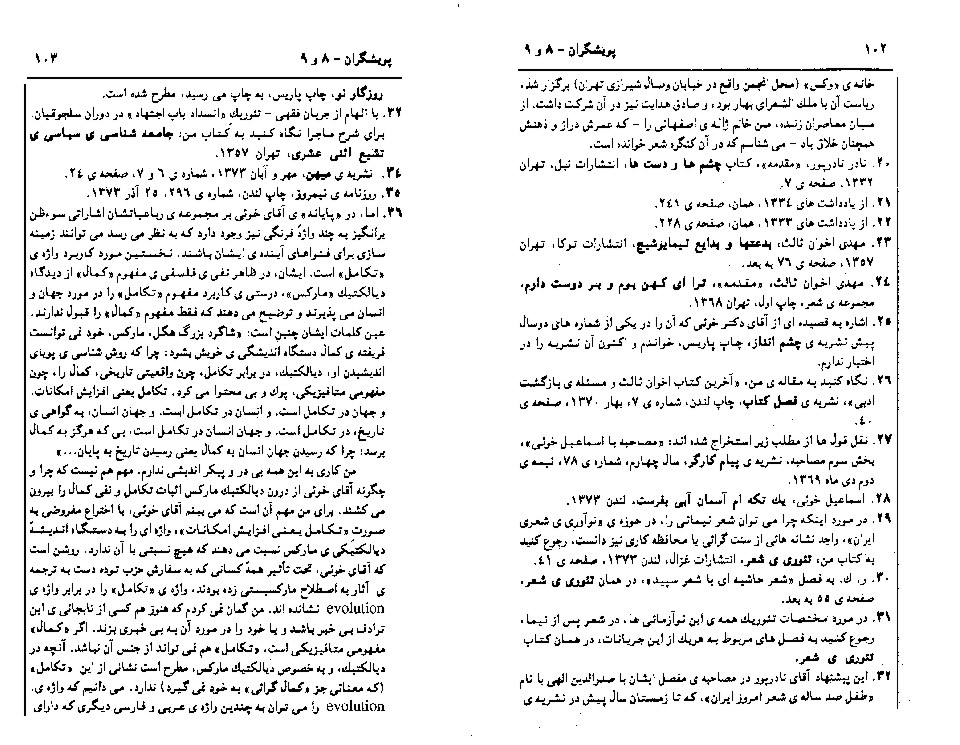 ۱۰۲
پویشگران - ۸ و ۹
خانه ی «وکس» (محل انجمن واقع در خیابان وصال شیرازی تهران) برگزار شد،
ریاست آن با ملك الشعرای بهار بود، و صادق هدایت نیز در آن شرکت داشت. از
میان معاصران زنده، من خانم ژاله ی اصفهانی را - که عمرش دراز و ذهنش
همچنان خلاق باد - می شناسم که در آن کنگره شعر خوانده است.
۲۰. نادر نادرپور، «مقدمه»، کتاب چشم ها و دست ها، انتشارات نیل، تهران
۱۳۳۲، صفحه ی ۷.
۲۱. از یادداشت های ۱۳۳۴، همان، صفحه ی ۲۴۱.
۲۲. از یادداشت های ۱۳۳۳، همان، صفحه ی ۲۲۸.
۲۳. مهدی اخوان ثالث، بدعتها و بدایع نیمایوشیج، انتشارات توکا، تهران
۱۳۵۷، صفحه ی ۷۶ به بعد.
۲۴. مهدی اخوان ثالث، «مقدمه»، ترا ای کهن بوم و بر دوست دارم،
مجموعه ی شعر، چاپ اول، تهران ۱۳۶۸.
۲۵. اشاره به قصیده ای از آقای دکتر خوئی که آن را در یکی از شماره های دوسال
پیش نشریه ی چشم انداز، چاپ پاریس، خواندم و اکنون آن نشریه را در
اختیار ندارم.
۲۶. نگاه کنید به مقاله ی من، «آخرین کتاب اخوان ثالث و مسئله ی بازگشت
ادبی»، نشریه ی فصل کتاب، چاپ لندن، شماره ی ۷، بهار ۱۳۷۰، صفحه ی
۴۰.
۲۷. نقل قول ها از مطلب زیر استخراج شده اند: «مصاحبه با اسماعیل خوئی»،
بخش سوم مصاحبه، نشریه ی پیام کارگر، سال چهارم، شماره ی ۷۸، نیمه ی
دوم دی ماه ۱۳۶۹.
۲۸. اسماعیل خوئی، یك تکه ام آسمان آبی بفرست، لندن ۱۳۷۳.
۲۹. در مورد اینکه چرا می توان شعر نیمائی را، در حوزه ی «نوآوری ی شعری
ایران»، واجد نشانه هائی از سنت گرائی یا محافظه کاری نیز دانست، رجوع کنید
به کتاب من، تئوری ی شعر، انتشارات غزال، لندن ۱۳۷۳، صفحه ی ۴۱.
۳۰. ر. ك. به فصل «شعر حاشیه ای یا شعر سپید»، در همان تئوری ی شعر،
صفحه ی ۵۵ به بعد.
۳۱. در مورد مختصات تئوریك همه ی این نوآزمائی ها، در شعر پس از نیما،
رجوع کنید به فصل های مربوط به هریك از این جریانات، در همان کتاب
تئوری ی شعر.
۳۲. این پیشنهاد آقای نادرپور در مصاحبه ی مفصل ایشان با صدرالدین الهی با نام
«طفل صد ساله ی شعر امروز ایران»، که تا زمستان سال پیش در نشریه ی
پویشگران - ۸ و ۹
۱۰۳
روزگار نو، چاپ پاریس، به چاپ می رسید، مطرح شده است.
۳۳. با الهام از جریان فقهی - تئوریك «انسداد باب اجتهاد» در دوران سلجوقیان.
برای شرح ماجرا نگاه کنید به کتاب من: جامعه شناسی ی سیاسی ی
تشیع اثنی عشری، تهران ۱۳۵۷.
۳۴. نشریه ی میهن، مهر و آبان ۱۳۷۳، شماره ی ۶ و ۷، صفحه ی ۲۴.
۳۵. روزنامه ی نیمروز، چاپ لندن، شماره ی ۲۹۶، ۲۵ آذر ۱۳۷۳.
۳۶. اما، در «پایانه» ی آقای خوئی بر مجموعه ی رباعیاتشان اشاراتی سوءظن
برانگیز به چند واژهٔ فرنگی نیز وجود دارد که به نظر می رسد می توانند زمینه
سازی برای فتراهای آینده ی ایشان باشند. نخستین مورد کاربرد واژه ی
«تکامل» است. ایشان، در ظاهر نفی ی فلسفی ی مفهوم «کمال» از دیدگاه
دیالکتیك «مارکس»، درستی ی کاربرد مفهوم «تکامل» را در مورد جهان و
انسان می پذیرند و توضیح می دهند که فقط مفهوم «کمال» را قبول ندارند.
عین کلمات ایشان چنین است: «شاگرد بزرگ هگل، مارکس، خود نمی توانست
فریفته ی کمال دستگاه اندیشگی ی خویش بشود: چرا که روش شناسی ی پویای
اندیشیدن او، دیالکتیك، در برابر تکامل، چون واقعیتی تاریخی، کمال را، چون
مفهومی متافیزیکی، پوك و بی محتوا می کرد. تکامل یعنی افزایش امکانات.
و جهان در تکامل است. و انسان در تکامل است. و جهان انسان، به گواهی ی
تاریخ، در تکامل است. و جهان انسان در تکامل است، بی که هرگز به کمال
برسد: چرا که رسیدن جهان انسان به کمال یعنی رسیدن تاریخ به پایان...»
من کاری به این همه بی در و پیکر اندیشی ندارم. مهم هم نیست که چرا و
چگونه آقای خوئی از درون دیالکتیك مارکس اثبات تکامل و نفی کمال را بیرون
می کشند. برای من مهم آن است که می بینم آقای خوئی، با اختراع مفروضی به
صورت «تکامل یعنی افزایش امکانات»، واژه ای را به دستگاه اندیشهٔ
دیالکتیکی ی مارکس نسبت می دهند که هیچ نسبتی با آن ندارد. روشن است
که آقای خوئی، تحت تأثیر همهٔ کسانی که به سفارش حزب توده دست به ترجمه
ی آثار به اصطلاح مارکسیستی زده بودند، واژه ی «تکامل» را در برابر واژه ی
evolution نشانده اند. من گمان نمی کردم که هنوز هم کسی از نابجائی ی این
ترادف بی خبر باشد و یا خود را در مورد آن به بی خبری بزند. اگر «کمال»
مفهومی متافیزیکی است، «تکامل» هم نمی تواند از جنس آن نباشد. آنچه در
دیالکتیك، و به خصوص دیالکتیك مارکس، مطرح است نشانی از این «تکامل»
(که معنائی جز «کمال گرائی» به خود نمی گیرد) ندارد. می دانیم که واژه ی
evolution را می توان به چندین واژه ی عربی و فارسی دیگری که دارای